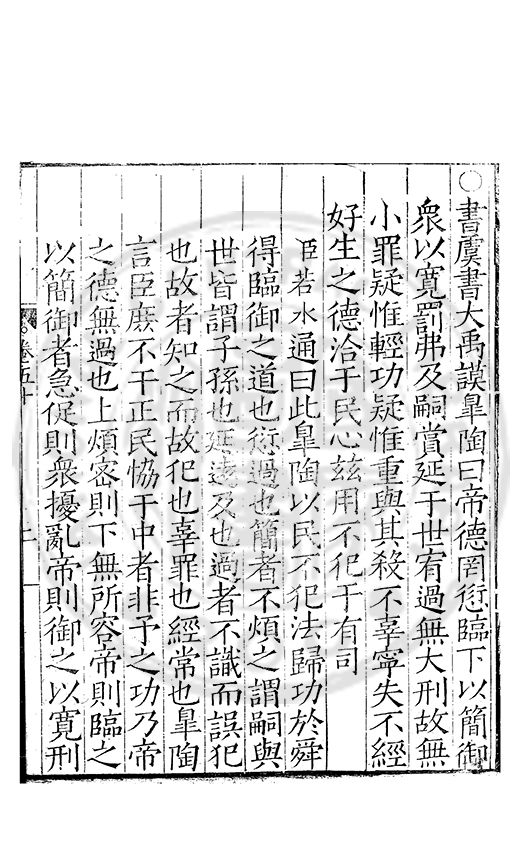 ○書虞書大禹謨臯陶曰帝德罔愆臨下以簡御
衆以寛罰弗及嗣賞延于世宥過無大刑故無
小罪疑惟輕功疑惟重與其殺不辜寧失不經
好生之德洽于民心兹用不犯于有司
臣若水通曰此臯陶以民不犯法歸功於舜
得臨御之道也愆過也簡者不煩之謂嗣與
世皆謂子孫也延遠及也過者不識而誤犯
也故者知之而故犯也辜罪也經常也臯陶
言臣庶不干正民恊于中者非予之功乃帝
之德無過也上煩宻則下無所容帝則臨之
以簡御者急促則衆擾亂帝則御之以寛刑
卷五十